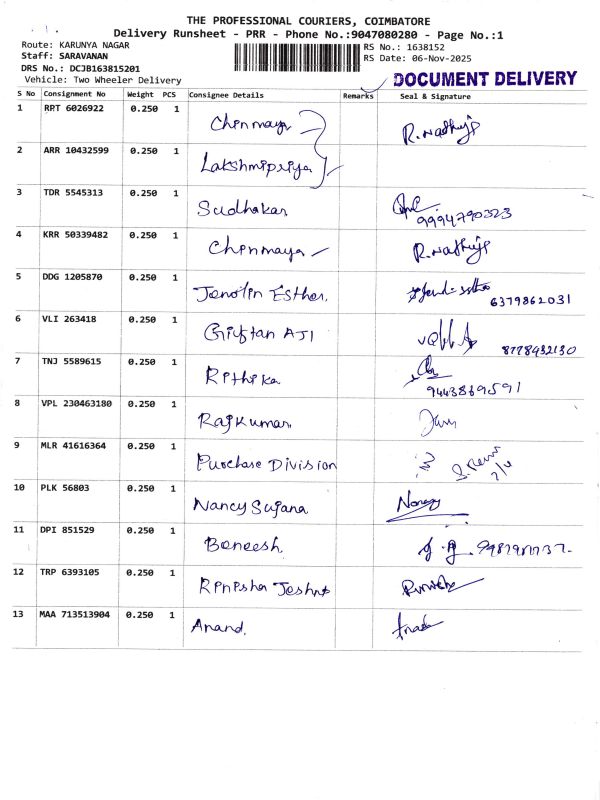 THE PROFESSIONAL COURIERS, COIMBATORE
Delivery Runsheet - PRR - Phone No.:9047080280 - Page No.:1
Route: KARUNYA NAGAR
RS No.: 1638152
Staff: SARAVANAN
RS Date: 06-Nov-2025
DRS No.: DCJB163815201
Vehicle: Two Wheeler Delivery
DOCUMENT DELIVERY
S No Consignment No Weight PCS Consignee Details Remarks Seal & Signature
1 RPT 6026922 0.250 1 Chinmaya
2 ARR 10432599 0.250 1 Lakshmipriya
3 TDR 5545313 0.250 1 Sudhakar 9994790323
4 KRR 50339482 0.250 1 Chinmaya
5 DDG 1205870 0.250 1 Jenolin Esther. 6379862031
6 VLI 263418 0.250 1 AJI 8778932130
7 TNJ 5589615 0.250 1 Rithika 9443869591
8 VPL 230463180 0.250 1 Rajkumar
9 MLR 41616364 0.250 1 Purchase Division
10 PLK 56803 0.250 1 Nancy Sujana Nancy
11 DPI 851529 0.250 1 Beneesh
12 TRP 6393105 0.250 1
13 MAA 713513904 0.250 1 Anand.